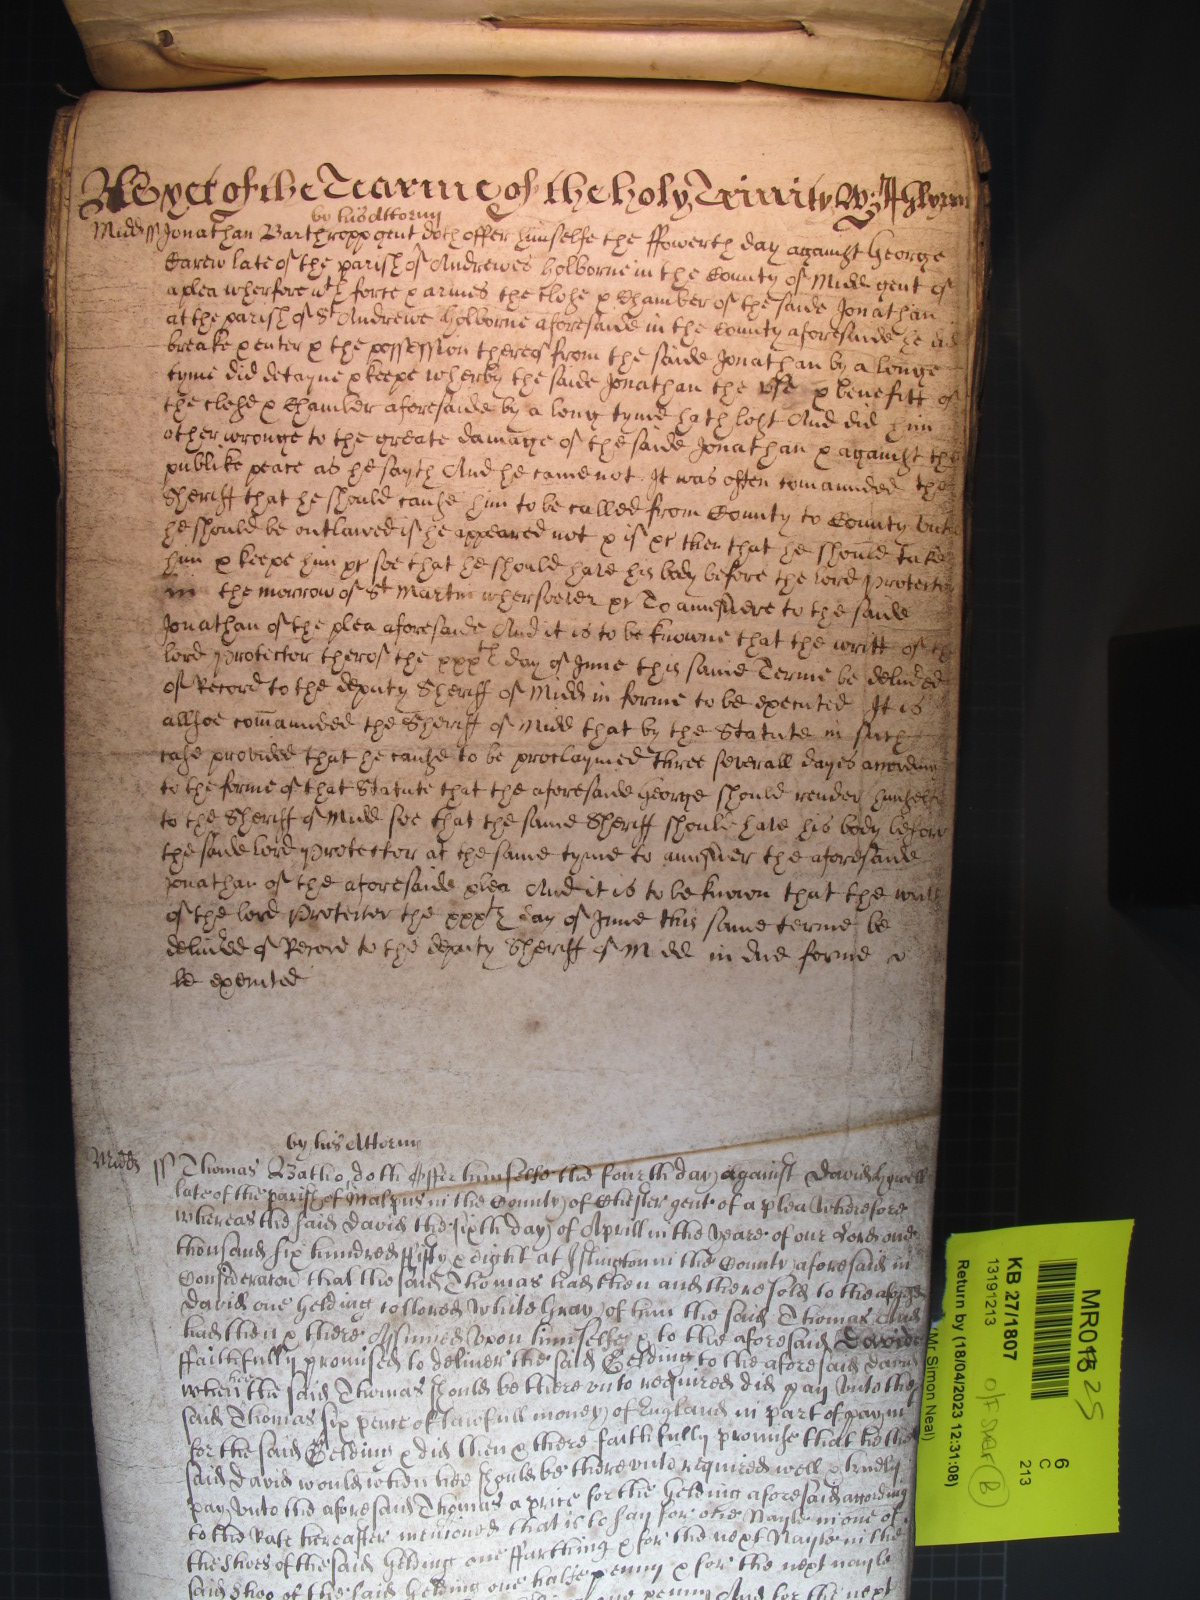 As yet of the Tearme of the holy Trinity Wi:
by his Attorny
Midd ss Jonathan Barthropp gent doth offer himselfe the ffowerth day against George
Carew late of the parish of Andrewes holborne in the County of Midd gent of
a plea wherfore wth force & armes the close & Chamber of the saide Jonathan
at the parish of St Andrewe Holborne aforesaide in the County aforesaide he did
breake & enter & the possession thereof from the saide Jonathan by a longe
tyme did detayne & keepe wherby the saide Jonathan the use & benefitt of
the close & Chamber aforesaide by a long tyme hath lost And did him
other wronge to the greate damage of the saide Jonathan & against the
publike peace as he sayth And he came not It was often comaunded the
Sheriff that he should cause him to be called from County to County untill
he should be outlawed if he appeared not & if &c then that he should take
him & keepe him &c soe that he should have his body before the lord Protector
in the morrow of St Martin whersoever &c To answere to the saide
Jonathan of the plea aforesaide And it is to be knowne that the writt of the
lord Protector therof the xxxth day of June this same Terme be delived
of Record to the deputy Sheriff of Midd in forme to be executed It is
allsoe comaunded the Sheriff of Midd that by the Statute in such
case provided that he cause to be proclaymed three severall dayes according
to the forme of that Statute that the aforesaide George should render himselfe
to the Sheriff of Midd soe that the same Sheriff should have his body before
the saide lord Protector at the same tyme to answer the aforesaide
Jonathan of the aforesaide plea And it is to be known that the writt
of the lord Protector the xxxth day of June this same terme be
delived of Record to the deputy Sheriff of Midd in due forme to
be executed
by his Attorny
Midd ss Thomas Batho doth offer himselfe the fourth day against David
late of the parish of Malpus in the County of Chester gent of a plea wherefore
whereas the said David the sixth day of Aprill in the yeare of our Lord one
thousand six hundred ffifty & eight at Islington in the County aforesaid in
Consideracon that the said Thomas had then and there sold to the aforesaid
David one Gelding colored white Gray of him the said Thomas And
had then & there Assumed upon himselfe & to the aforesaid David
ffaithfully promised to deliver the said Gelding to the aforesaid David
when hee the said Thomas should be there unto required did pay unto the
said Thomas six pence of lawfull money of England in part of paymt
for the said Gelding & did then & there faithfully promise that he the
said David would when hee should be there unto required well & truely
pay unto the aforesaid Thomas a price for the Gelding aforesaid according
to the Rate hereafter mencioned that is to say for one Nayle in one of
the shoes of the said Gelding one ffarthing & for the next Nayle in the
said shoe of the said Gelding one halfe penny & for the next nayle
one penny And for the next
MR018 25
KB 27/1807
13191213
Return by (18/04/2023 12:31:08)
(Mr Simon Neal)
6
C
213
B